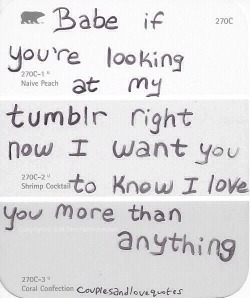 Babe if
270C
you're looking
270C-1 u
Naive Peach
at my
tumblr right
now I want you
270C-2 u
Shrimp Cocktail
to know I love
you more than
anything
270C-3 u
Coral Confection
couplesandlovequotes